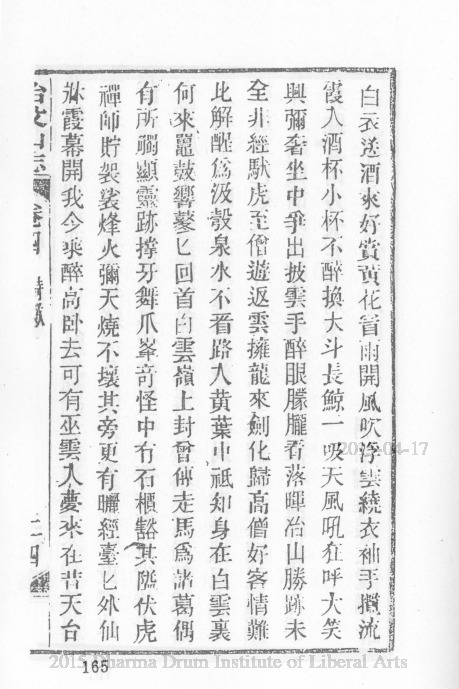 白衣送酒來好賞黃花首雨開風吹浮雲繞衣袖手攬流
霞入酒杯小杯不醉換大斗長鯨一吸天風吼狂呼大笑
興彌奢坐中爭出披雲手醉眼朦朧看落暉治山勝跡未
全非經馱虎至僧遊返雲擁龍來劍化歸高僧好客情難
比解酲爲汲殼泉水不看路人黃葉中祗知身在白雲裏
何來鼉鼓響鼕匕回首白雲嶺上封曾傳走馬爲諸葛偶
有所觸顯靈跡撐牙舞爪峯竒怪中有石櫃豁其隘伏虎
禪師貯袈裟烽火彌天燒不壞其旁更有曬經臺匕外仙
牀霞幕開我今乘醉高卧去可有巫雲入夢來在昔天台
治父山志 卷四 詩 二四
165
2015 Dharma Drum Institute of Liberal Arts